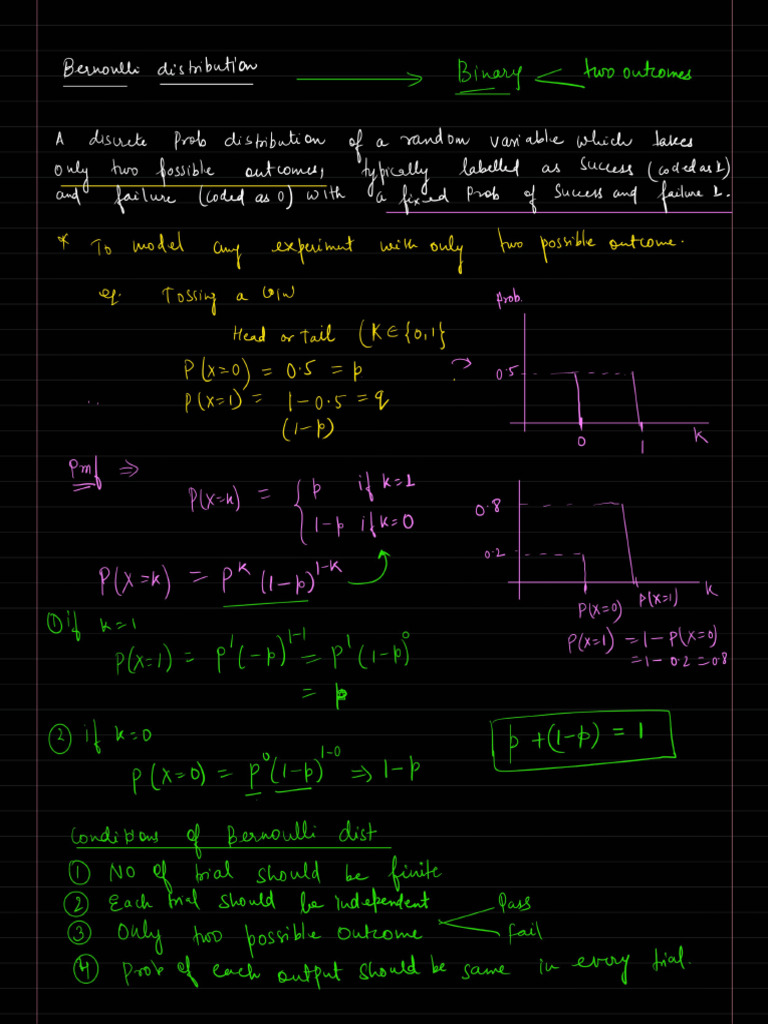 Bernoulli distribution → Binary < two outcomes
A discrete Prob distribution of a random variable which takes
only two possible outcomes, typically labelled as Success (coded as 1)
and failure (coded as 0) with a fixed Prob of Success and failure 1.
* To model any experiment with only two possible outcome.
eg. Tossing a coin
Head or Tail (K∈{0,1}
P(x=0) = 0.5 = p
P(x=1) = 1-0.5 = q
(1-p)
Prob.
0.5
0 1 K
Pmf ⇒
P(X=k) = { p if k=1
1-p if k=0
P(X=k) = p^k (1-p)^1-k
0.8
0.2
P(X=0) P(X=1) K
P(X=1) = 1-P(X=0)
= 1-0.2=0.8
① if k=1
P(X=1) = p^1(-p)^1-1 = p^1(1-p)^0
= p
② if k=0
P(X=0) = p^0(1-p)^1-0 ⇒ 1-p
p+(1-p) = 1
Conditions of Bernoulli dist
① No of trial should be finite
② Each trial should be independent
③ Only two possible outcome < Pass
Fail
④ Prob of each output should be same in every trial.